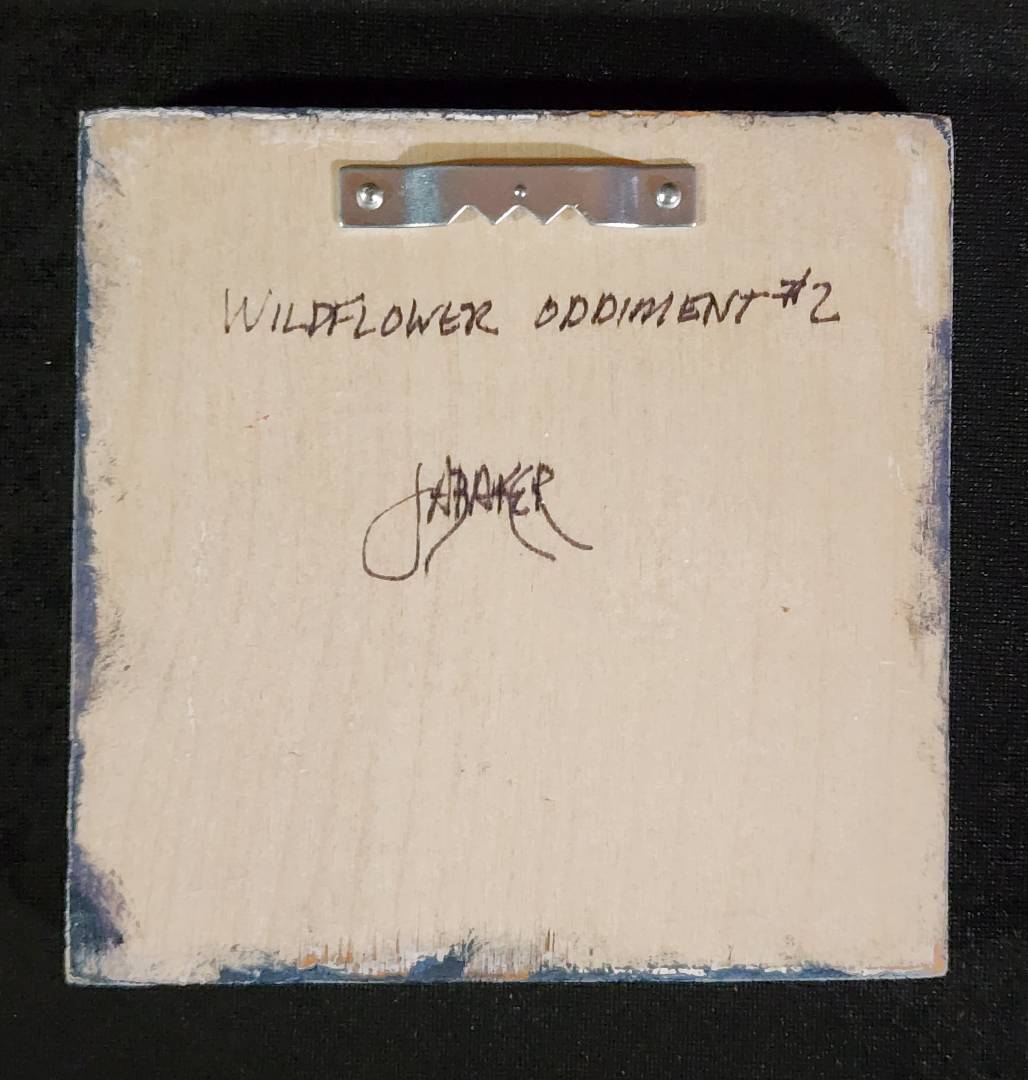 WILDFLOWER ODDIMENT #2
JABAKER